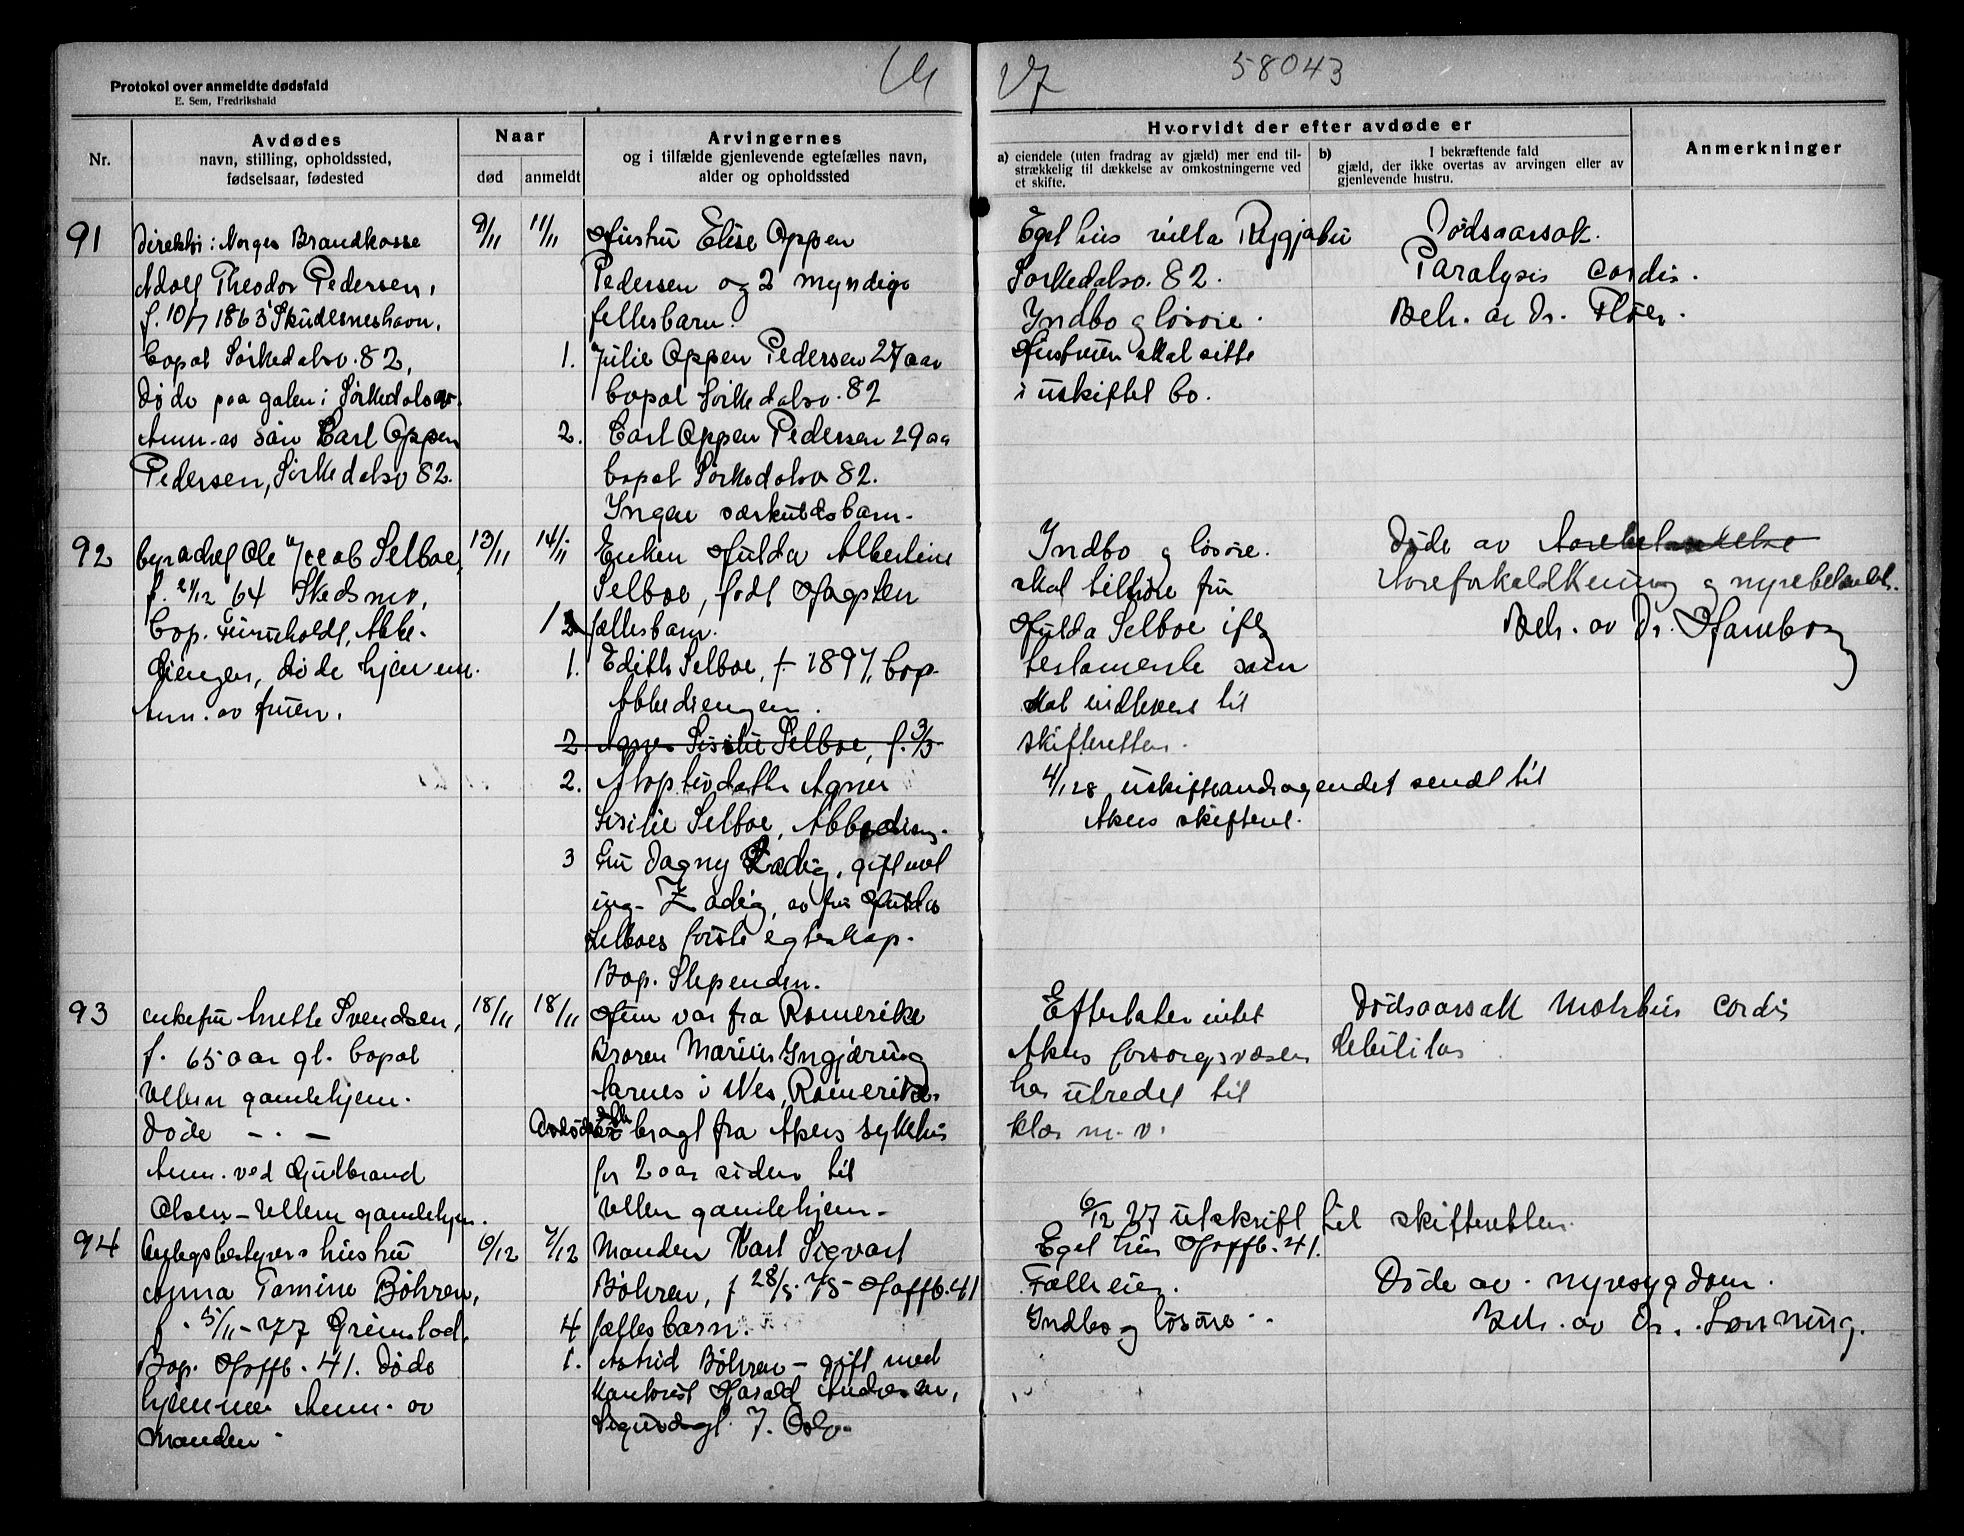 58043
Protokol over anmeldte dødsfald
E. Sem, Fredrikshald
Nr.
Avdødes
navn, stilling, opholdssted,
fødselsaar, fødested
Naar
død
anmeldt
Arvingernes
og i tilfælde gjenlevende egtefælles navn,
alder og opholdssted
Hvorvidt der efter avdøde er
a) eiendele (uten fradrag av gjæld) mer end til-
strækkelig til dækkelse av omkostningerne ved
et skifte.
b) I bekræftende fald
gjæld, der ikke overtas av arvingen eller av
gjenlevende hustru.
Anmerkninger
91
Direktør i Norges Brandkasse
Adolf Theodor Pedersen,
f. 10/7 1863 Skudesneshavn,
bopal Sørkedalsv. 82,
Døde paa gaten i Sørkedalsv.
Anm. av søn Carl Oppen
Pedersen, Sørkedalsv 82.
9/11
11/11
Hustru Elise Oppen
Pedersen og 2 myndige
fellesbarn.
1. Julie Oppen Pedersen 27 aar
bopal Sørkedalsv. 82
2. Carl Oppen Pedersen 29 aa
bopal Sørkedalsv 82.
Ingen særkuldsbarn.
Eget hus villa Rygjabu
Sørkedalsv. 82.
Indbo og løsøre.
Hustruen skal sitte
i uskiftet bo.
Dødsaarsak.
Paralysis cordis.
Beh. av Dr. Fløer.
92
Ole Jacob Selboe,
f. 21/12 64 Skedsmo,
bop. Furuholdt, Abbe-
diengen, døde hjemme.
Anm. av fruen.
13/11
14/11
Enken Hulda Albertine
Selboe, født Hagsten
fællesbarn.
1. Edith Selboe, f. 1897, bop.
Abbediengen.
2 Agnes Sisilie Selboe, f. 3/3
2. Adoptivdatter Agnes
Sisilie Selboe, Abbedieng.
3 Fru Dagny Zadig, gift med
ing. Zadig, av fru Hulda
Selboes første egteskap.
Bop. Slependen.
Indbo og løsøre.
skal tilhøre fru
Hulda Selboe iflg
testamente som
skal indleveres til
skifteretten.
4/1 28 uskifteandragendet sendt til
Akers skifteret.
Døde av
Aareforkalkning og nyrebetændels.
Beh. av Dr. Hambo
93
enkefru Anette Svendsen,
f. 65 aar gl. bopal
Ullern gamlehjem.
Døde — . —
Anm. ved Gulbrand
Olsen – Ullern gamlehjem.
18/11
18/11
Hun var fra Romerike
Broren Marius Ingjæring
Aarnes i Nes, Romerike.
Avdøde blev bragt fra Akers sykehus
for 2 aar siden til
Ullern gamlehjem.
Efterlater intet
Akers forsorgsvæsen
har utredet til
klær m. v.
Dødsaarsak Morbus cordis
debilitas
6/12 27 utskrift til skifteretten.
94
Anlegsbestyrers hustru
Anna Tomine Bøhren,
f. 5/11 – 77 Grimstad.
Bop. Hoffb. 41. Døde
hjemme Anm. av
Manden.
6/12
7/12
Manden Karl Sigvart
Bøhren, f 28/5. 75 – Hoffb. 41
4 fællesbarn.
1. Astrid Bøhren – gift med
kontorist Harald Andersen,
Sigurdsgt. 7. Oslo.
Eget hus Hoffb. 41.
Fælleseie.
Indbo og løsøre.
Døde av nyresygdom.
Beh. av Dr. Lønning.